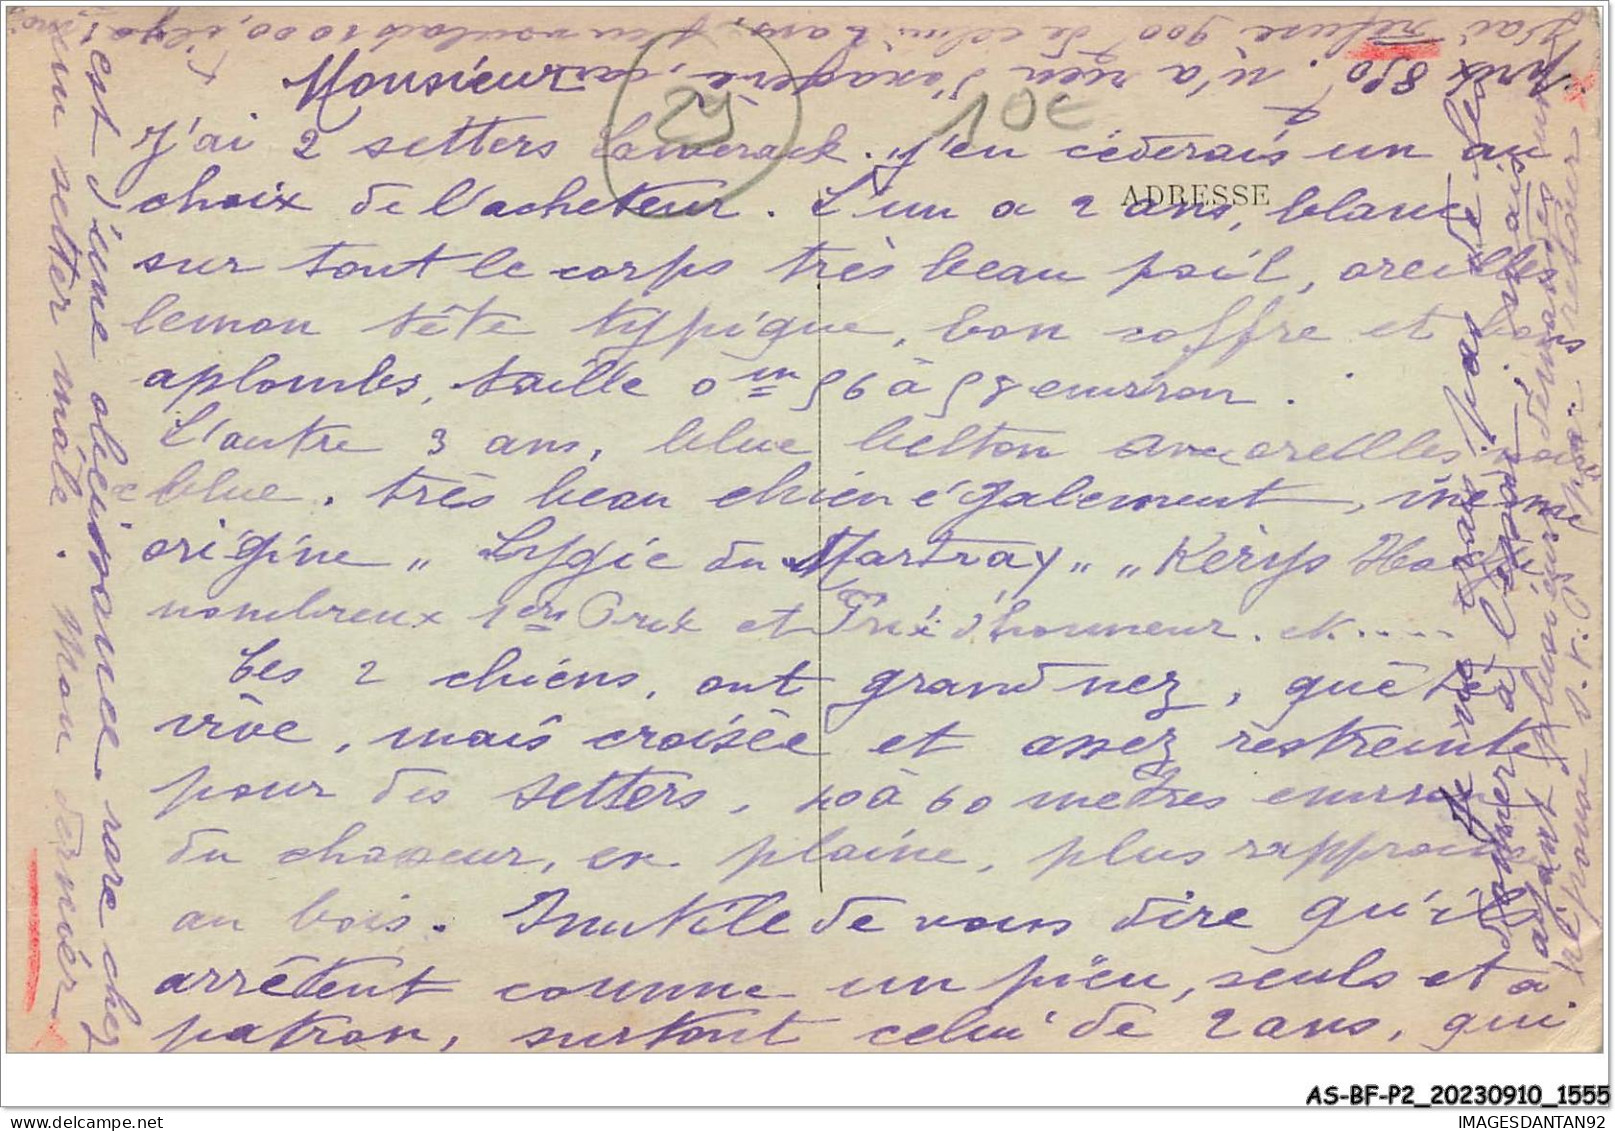 Monsieur
J'ai 2 setters Laverack. J'en céderais un au
choix de l'acheteur. L'un a 2 ans, blanc
ADRESSE
sur tout le corps très beau poil, oreilles
lemon tête typique, bon coffre et bons
aplombs, taille 0m 56 à 58 environ.
L'autre 3 ans, blue belton avec oreilles
blue. très beau chien également, même
origine „ Lygie du Martray „ „ Kérys
nombreux 1ers Prix et Prix d'honneur. etc.....
Ces 2 chiens, ont grand nez, quête
vive, mais croisée et assez restreinte
pour des setters, 40 à 60 mètres environ
du chasseur, en plaine, plus rapprochée
au bois. Inutile de vous dire qu'ils
arrêtent comme un pieu, seuls et à
patron, surtout celui de 2 ans, qui
est d'une obéissance rare chez
un setter mâle. Mon dernier
prix 850 f. n'a rien d'exagéré, car
J'ai refusé 900 f de celui 2 ans, j'en voulais 1000, il y a
Je ne puis pas les
donner à l'essai, mais
ayant plusieurs demandes
réponse s.v.p. par retour
29
10€
AS-BF-P2_20230910_1555
IMAGESDANTAN92